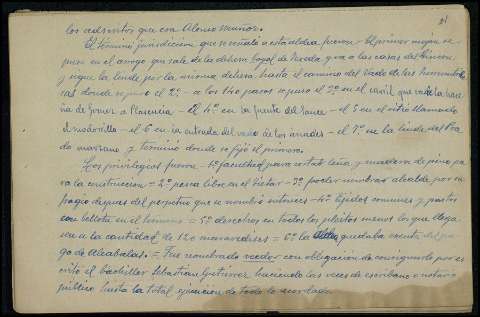 21
los adscritos que con Alonso Muñoz.
El término jurisdiccional que se señaló a esta aldea fueron = El primer mojón se
puso en el arroyo que sale de la dehesa boyal de y va a las casas del Rincón
y sigue la linde por la misma dehesa hasta el camino del Vado de las
donde se puso el 2º - a los 140 pasos se puso el 3º en el carril que va de la
de Gomez a Plasencia - el 4º en la fuente del Sauce - el 5 en el sitio llamado
el - el 6 en la entrada del vado de los - el 7º en la linde del
y terminó donde se fijó el primero.
Los privilegios fueron - 1º facultad para cortar leña y madera de pino pa
ra la construccion = 2º pesca libre en el Tietar - 3º poder nombrar alcalde por su
fragio despues del perpetuo que se nombró entonces - 4º Egidos comunes y pastos
con bellota en el termino = 5º derechos en todos los pleitos menos los que llega
sen a la cantidad de 120 maravedises = 6º la quedaba exenta del pa
go de Alcabalas. = Fue nombrado veedor con obligacion de consignarlo por es
crito el bachiller Sebastian Gutierrez haciendo las veces de escribano o notario
público hasta la total ejecucion de todo lo acordado.